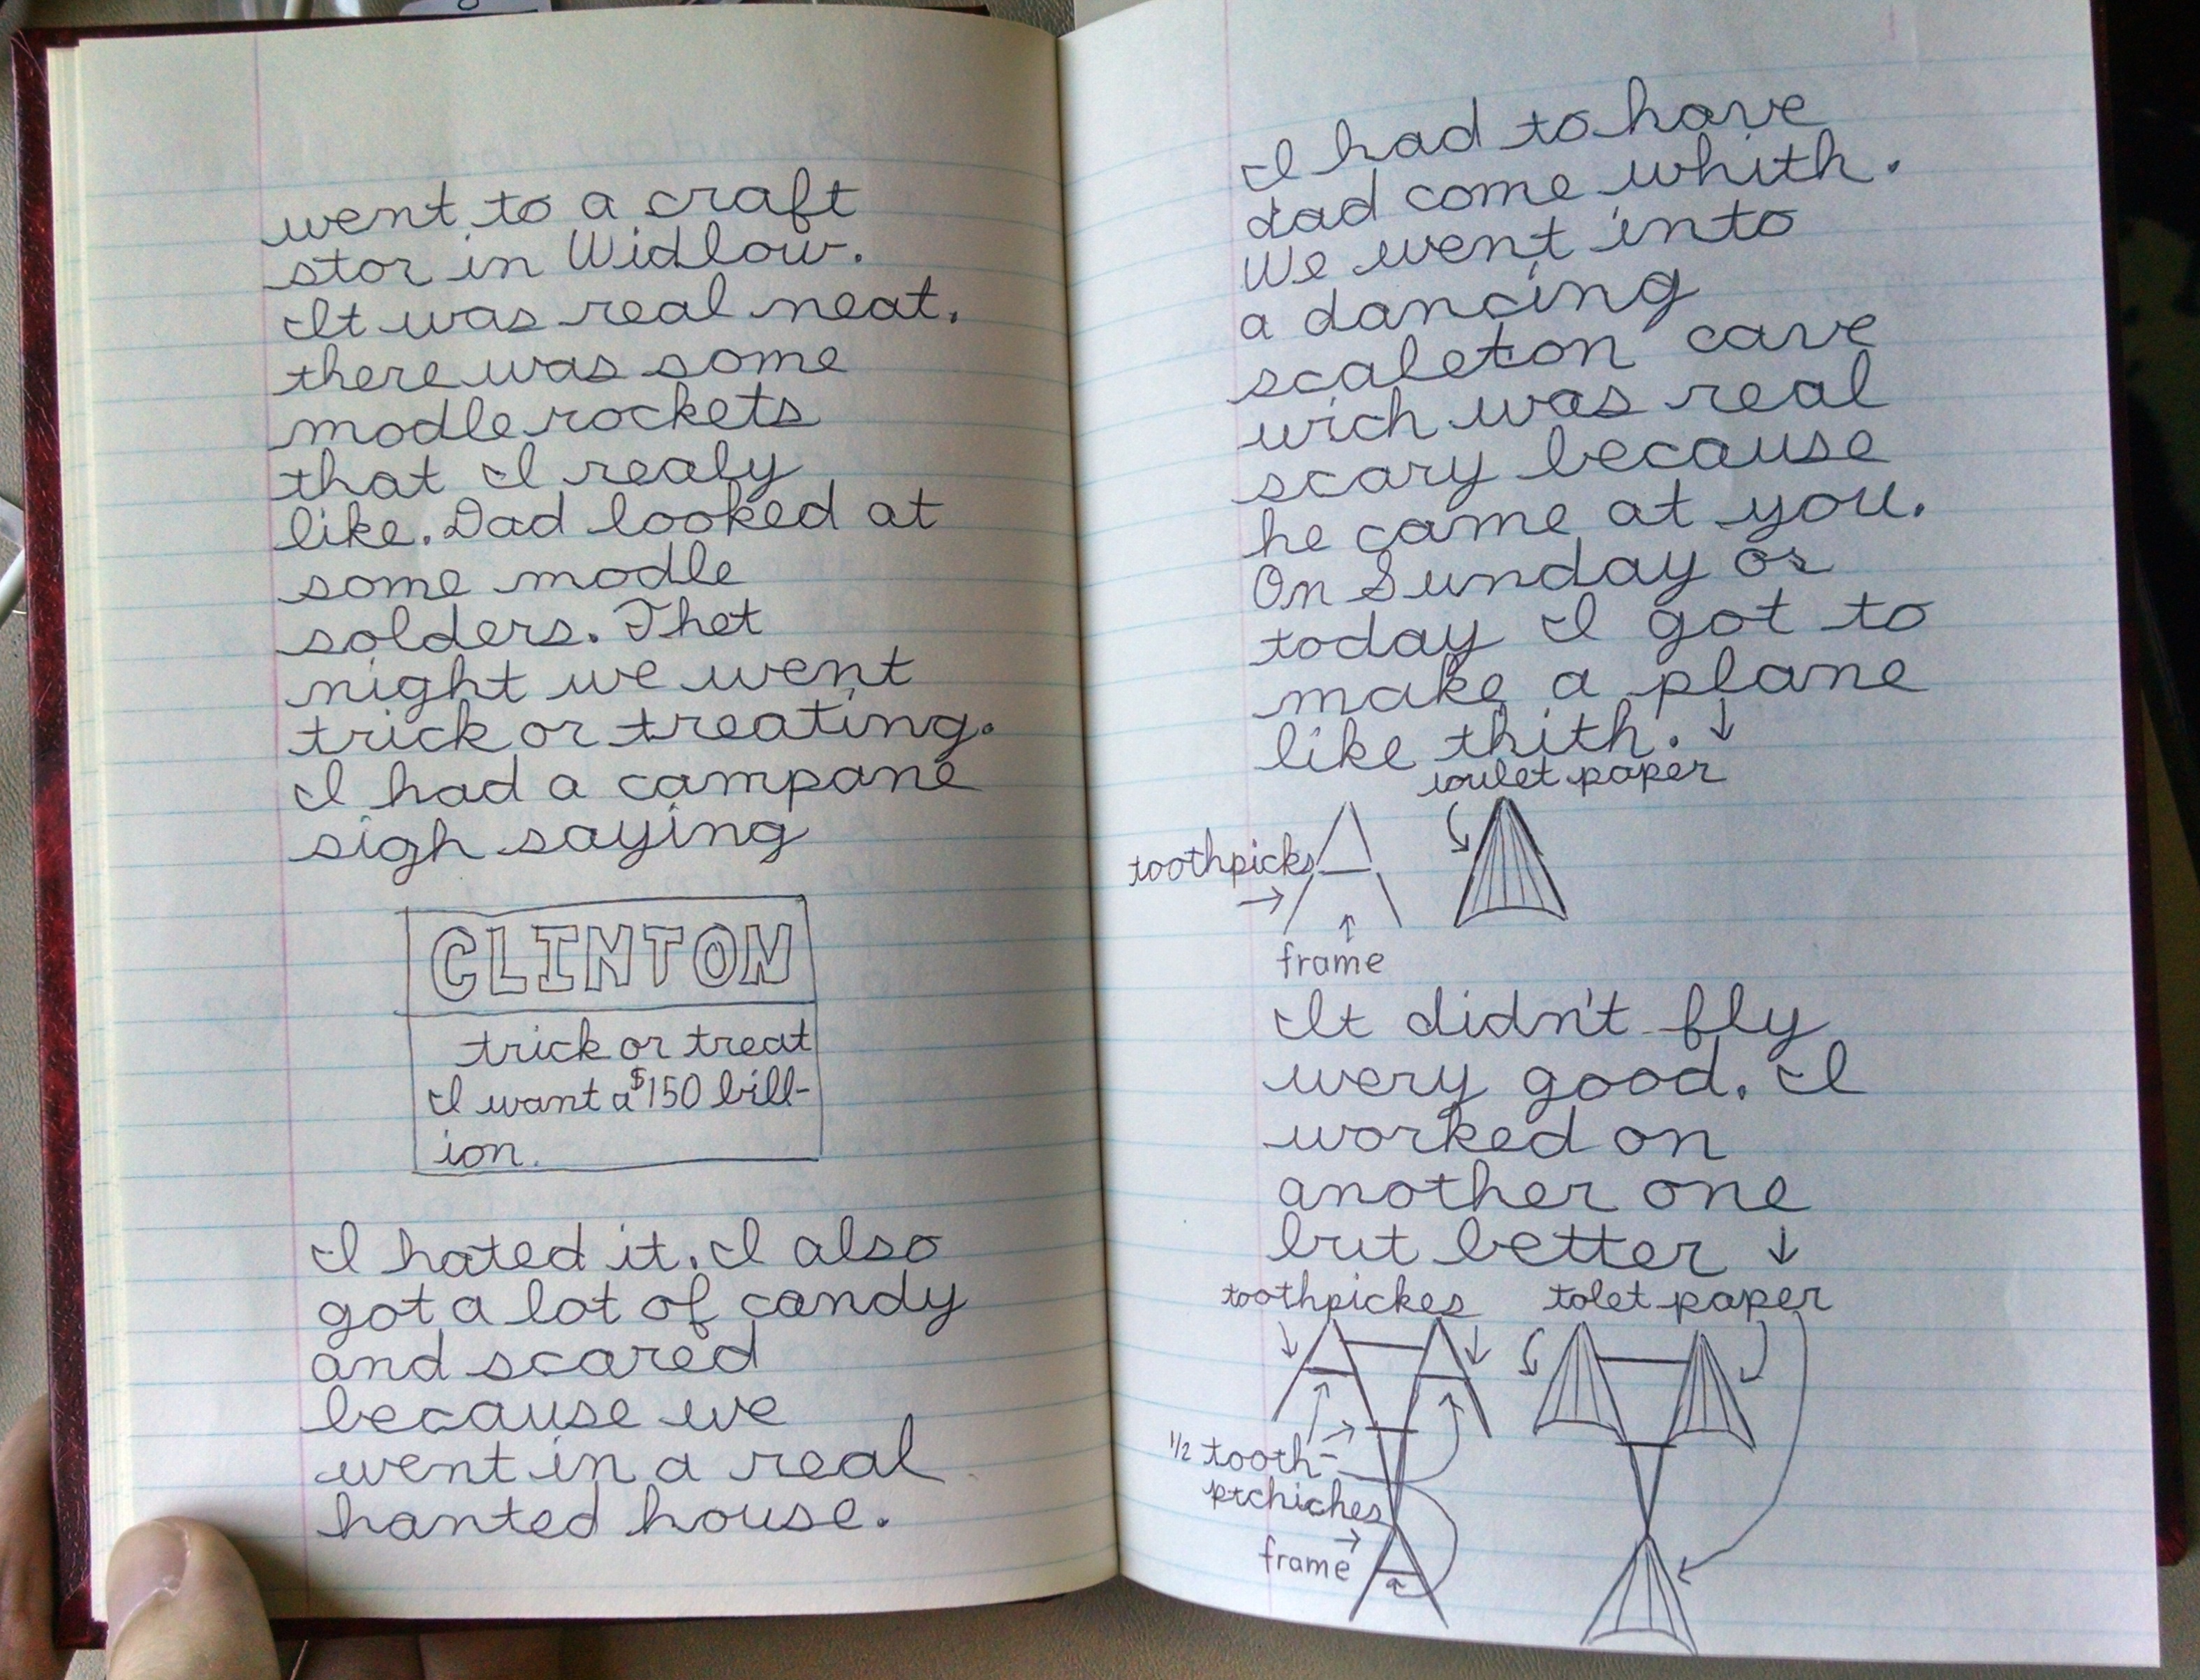 went to a craft
stor in Widlow.
It was real neat.
there was some
modle rockets
that I realy
like. Dad looked at
some modle
solders. Thet
night we went
trick or treating.
I had a campane
sigh saying
CLINTON
trick or treat
I want a $150 bill-
ion.
I hated it. I also
got a lot of candy
and scared
because we
went in a real
hanted house.
I had to have
dad come whith.
We went into
a dancing
scaleton cave
wich was real
scary because
he came at you.
On Sunday or
today I got to
make a plane
like thith. ↓
toulet paper
toothpicks
→
frame
It didn't fly
very good. I
worked on
another one
but better ↓
toothpickes tolet paper
1/2 tooth-
ptchiches
frame